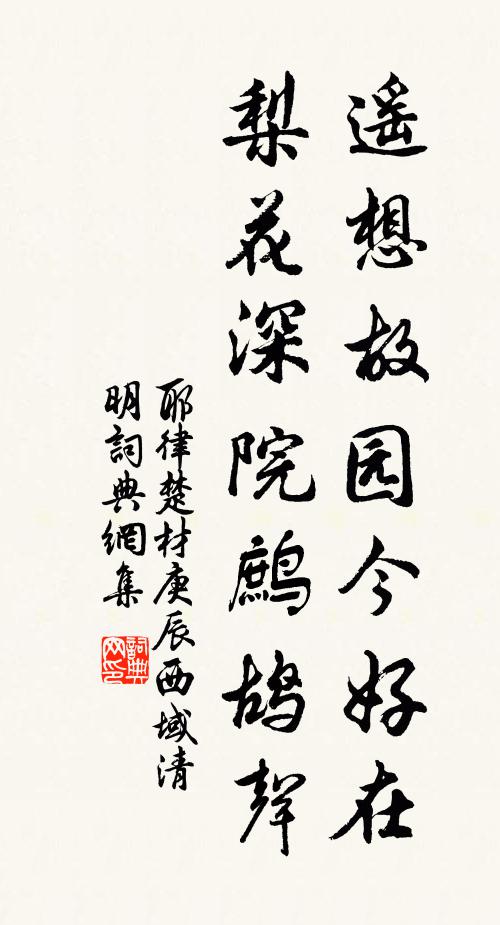 遥想故园今好在
梨花深院鹧鸪聲
耶律楚材庚辰西域清
明詞典網集
詞典
网印